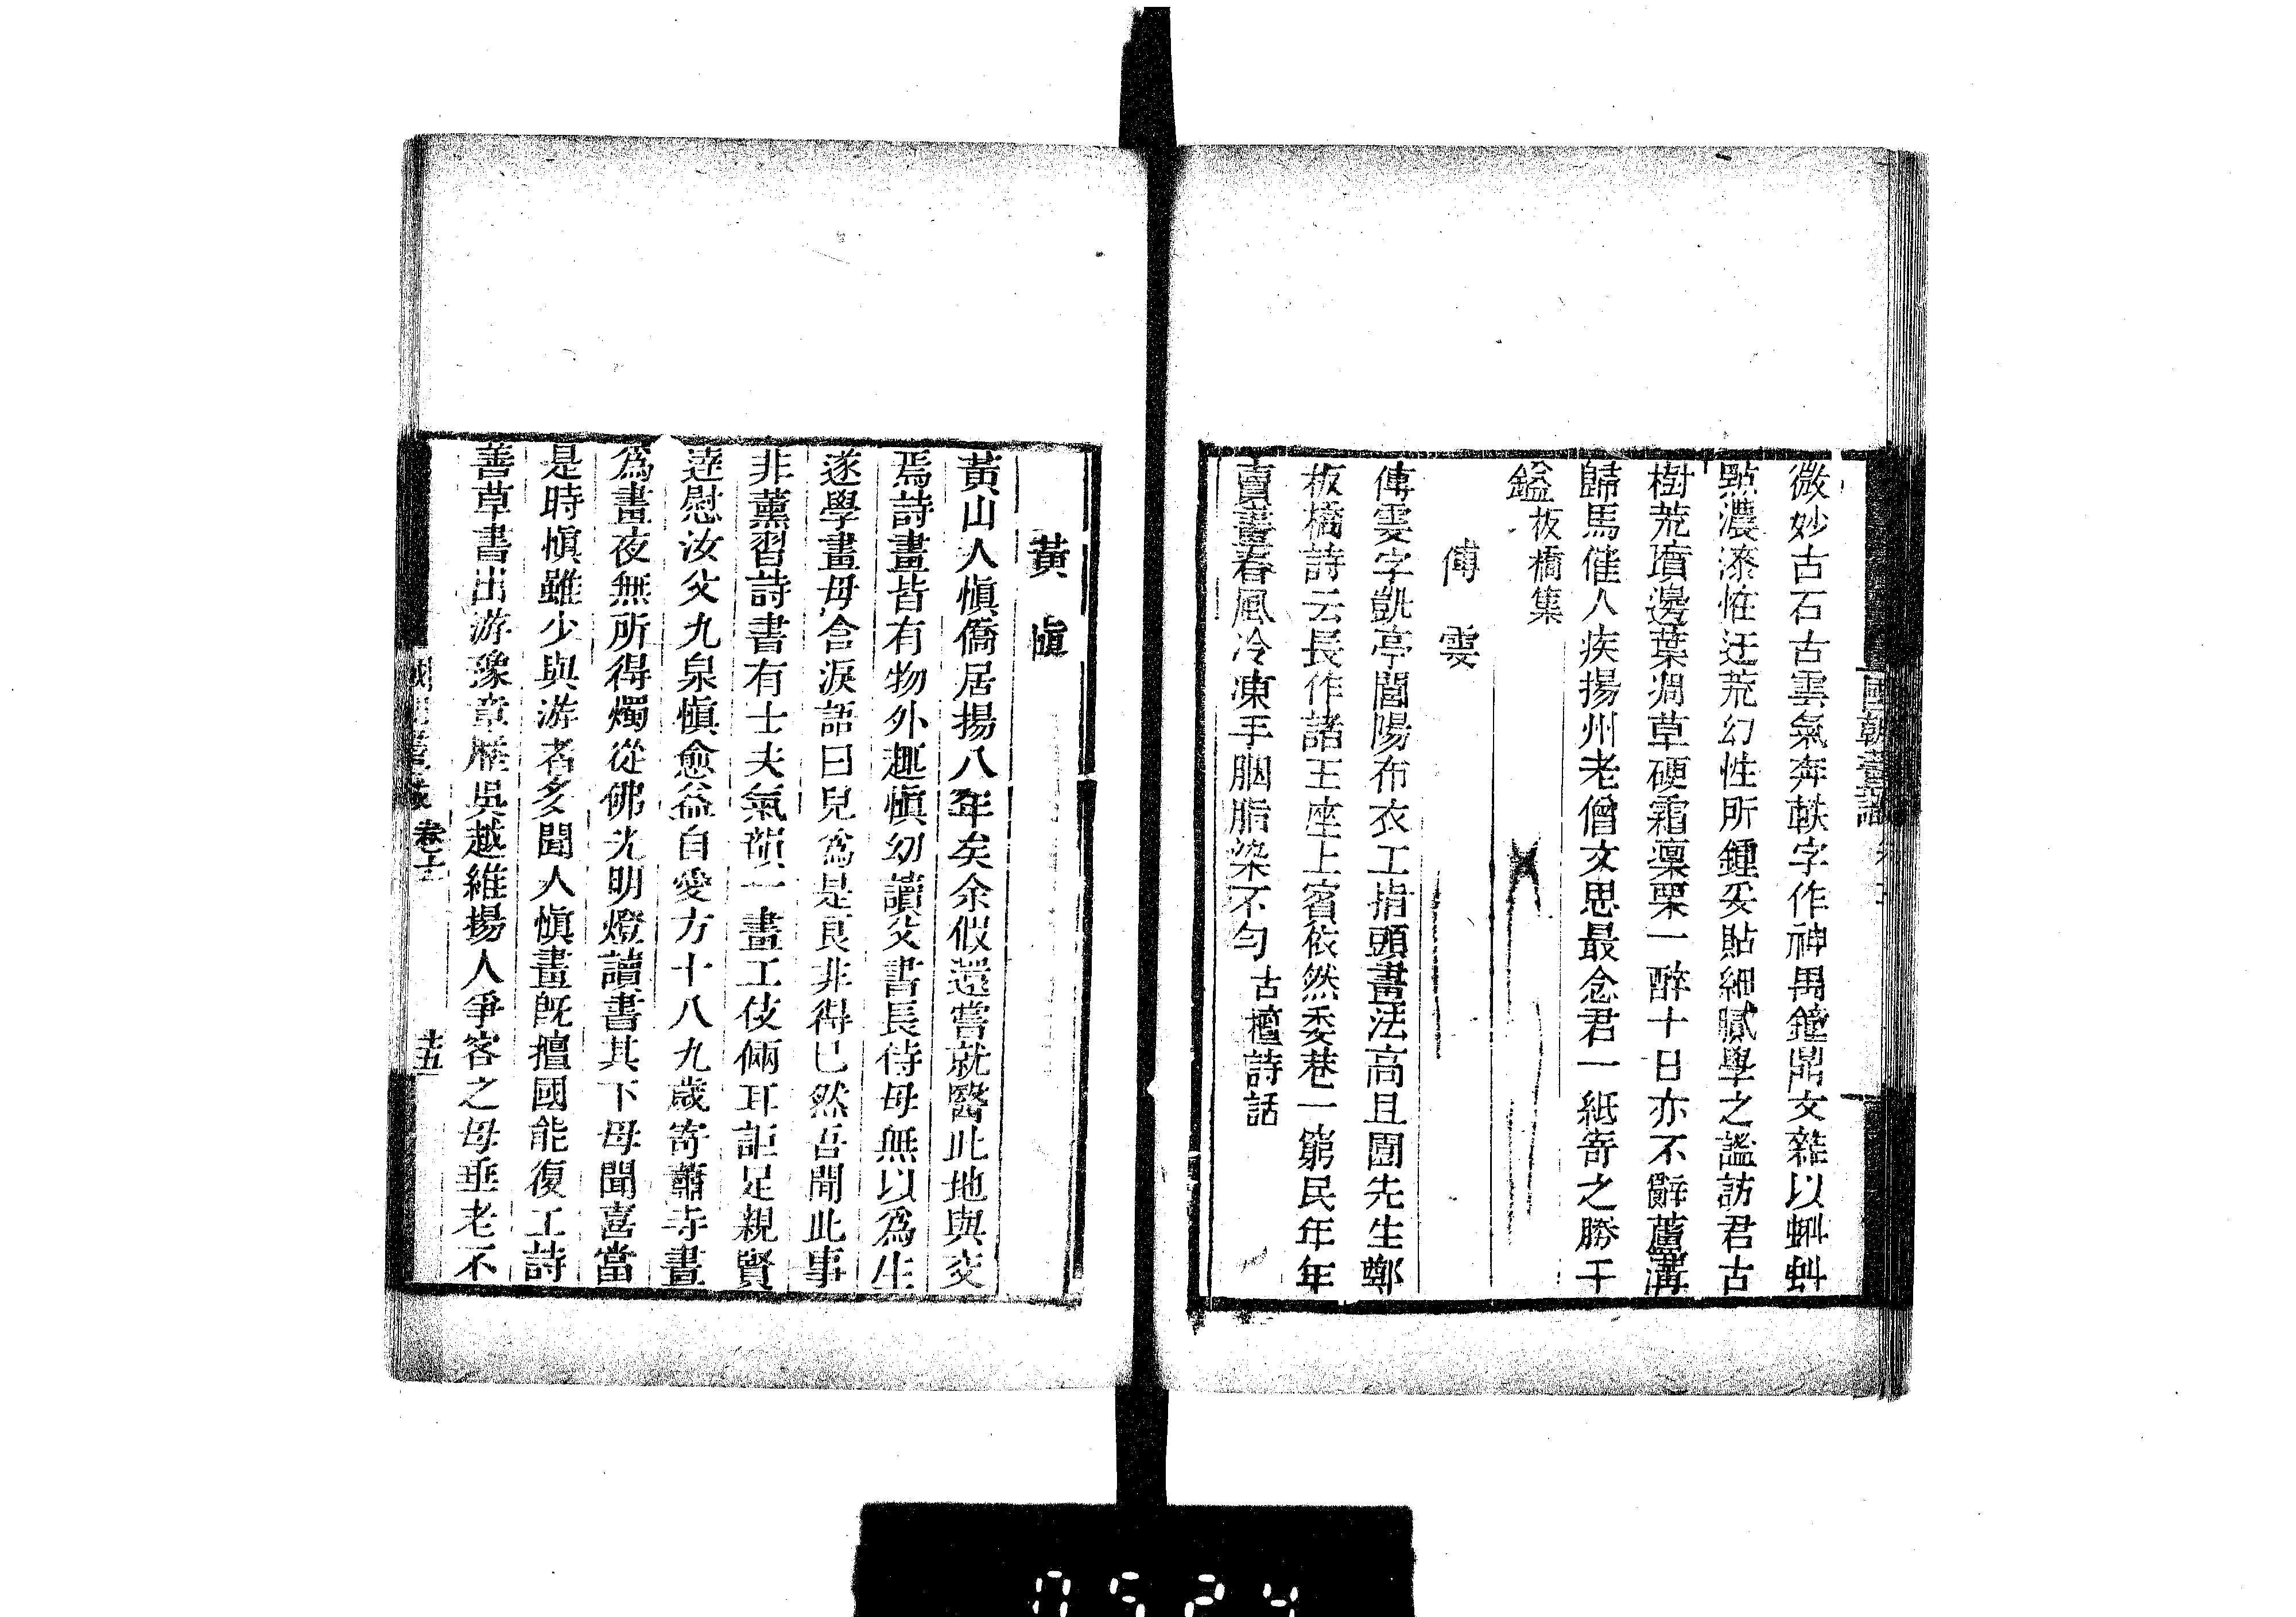 國朝畫識
微妙古石古雲氣奔軼字作神禺鐘鼎文雜以蝌蚪
點濃漆怪迂荒幻性所鍾妥貼細膩學之謐訪君古
樹荒墳邊葉凋草硬霜凜栗一醉十日亦不辭蘆溝
歸馬催人疾揚州老僧文思最念君一紙寄之勝千
鎰板橋集
傅雯
傅雯字凱亭閭陽布衣工指頭畫法高且園先生鄭
板橋詩云長作諸王座上賓依然委巷一窮民年年
賣畫春風冷凍手胭脂染不勻古檀詩話
黃慎
黃山人慎僑居揚八年矣余假還嘗就醫此地與交
焉詩畫皆有物外趣慎幼讀父書長侍母無以爲生
遂學畫母含淚語曰兒爲是良非得已然吾聞此事
非薰習詩書有士夫氣韻一畫工伎倆耳詎足親賢
達慰汝父九泉慎愈益自愛方十八九歲寄蕭寺晝
爲畫夜無所得燭從佛光明燈讀書其下母聞喜當
是時慎雖少與游者多聞人慎畫既擅國能復工詩
善草書出游豫章歷吳越維揚人爭客之母垂老不
卷十一
十五
0524